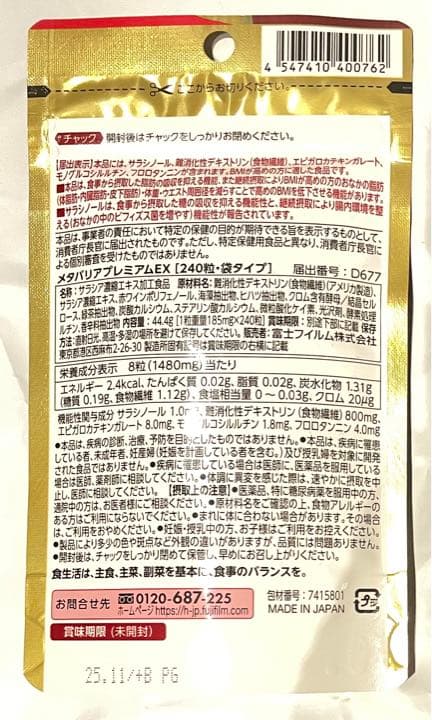 4 547410 400762
ここからお切りください。
チャック 開封後はチャックをしっかりお閉めください。
【届出表示】本品には、サラシノール、難消化性デキストリン(食物繊維)、エピガロカテキンガレート、
モノグルコシルルチン、フロロタンニンが含まれます。BMIが高めの方に適した食品です。
■本品は、食事から摂取した脂肪の吸収を抑える機能、また継続摂取によりBMIが高めの方のおなかの脂肪
(体脂肪・内臓脂肪・皮下脂肪)・体重・ウエスト周囲径を減らすことで高めのBMIを低下させる機能、
■サラシノールは、食事から摂取した糖の吸収を抑える機能性と、継続摂取により腸内環境を整
える(おなかの中のビフィズス菌を増やす)機能性が報告されています。
本品は、事業者の責任において特定の保健の目的が期待できる旨を表示するものとして、
消費者庁長官に届出されたものです。ただし、特定保健用食品と異なり、消費者庁長官に
よる個別審査を受けたものではありません。
メタバリアプレミアムEX [240粒・袋タイプ] 届出番号:D677
名称:サラシア濃縮エキス加工食品 原材料名:難消化性デキストリン(食物繊維)(アメリカ製造)、
サラシア濃縮エキス、赤ワインポリフェノール、海藻抽出物、ヒハツ抽出物、クロム含有酵母/結晶セル
ロース、緑茶抽出物、炭酸カルシウム、ステアリン酸カルシウム、微粒酸化ケイ素、光沢剤、酵素処理
ルチン、香辛料抽出物 内容量:44.4g[1粒重量185mg×240粒] 賞味期限:別途下部に記載 保存
方法:直射日光、高温・多湿の場所を避けて保存してください。 販売者:富士フイルム株式会社
東京都港区西麻布2-26-30 製造所固有記号は賞味期限の右横に記載
栄養成分表示 8粒(1480mg)当たり
エネルギー 2.4kcal、たんぱく質 0.02g、脂質 0.02g、炭水化物 1.31g
(糖質 0.19g、食物繊維 1.12g)、食塩相当量 0~0.03g、クロム 20μg
機能性関与成分 サラシノール 1.0mg、難消化性デキストリン(食物繊維) 800mg、
エピガロカテキンガレート 8.0mg、モノグルコシルルチン 1.8mg、フロロタンニン 4.0mg
●本品は、疾病の診断、治療、予防を目的としたものではありません。●本品は、疾病に罹患
している者、未成年者、妊産婦(妊娠を計画している者を含む。)及び授乳婦を対象に開発
された食品ではありません。●疾病に罹患している場合は医師に、医薬品を服用している
場合は医師、薬剤師に相談してください。●体調に異変を感じた際は、速やかに摂取を中
止し、医師に相談してください。【摂取上の注意】●医薬品、特に糖尿病薬を服用中の方、
通院中の方は、お医者様にご相談ください。●原材料名をご確認の上、食物アレルギーの
ある方はご利用にならないでください。●まれに体に合わない場合があります。その場合
は、ご利用をおやめください。●妊娠・授乳中の方、お子様はご利用をお控えください。
●製品により多少の色や斑点など外観の違いがありますが、品質には問題ありません。
●開封後は、チャックをしっかり閉めて保管し、早めにお召し上がりください。
食生活は、主食、主菜、副菜を基本に、食事のバランスを。
お問合せ先 0120-687-225
ホームページ https://h-jp.fujifilm.com/
包材番号:7415801
MADE IN JAPAN
プラ
賞味期限(未開封)
25.11/+B PG